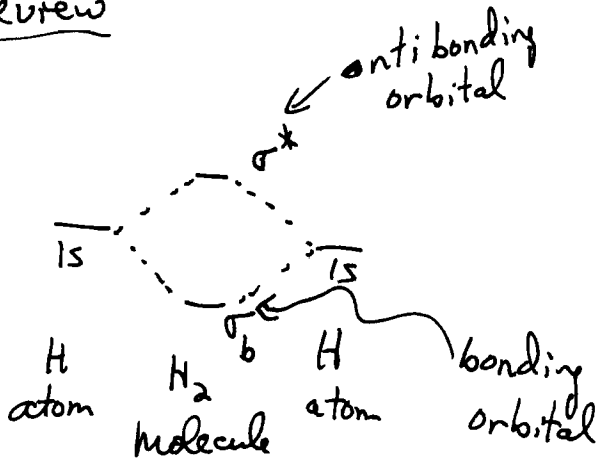 Review
anti bonding
orbital
σ*
1s
1s
σb
H
atom
H2
molecule
H
atom
bonding
orbital